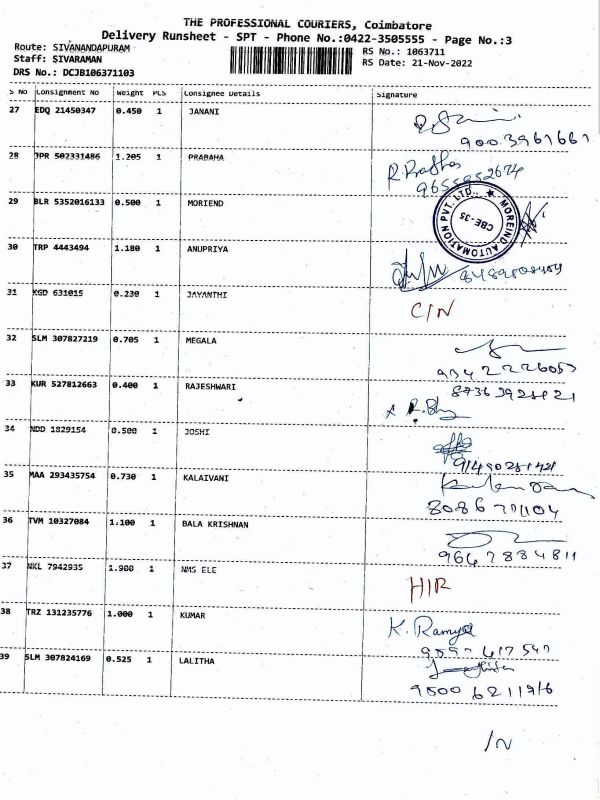 THE PROFESSIONAL COURIERS, Coimbatore
Delivery Runsheet - SPT - Phone No.:0422-3505555 - Page No.:3
Route: SIVANANDAPURAM
Staff: SIVARAMAN
DRS No.: DCJB106371103
RS No.: 1063711
RS Date: 21-Nov-2022
S No Consignment No Weight PCS Consignee Details Signature
27 EDQ 21450347 0.450 1 JANANI
9003961661
28 JPR 502331486 1.205 1 PRABAHA
R. Prabha
9655852674
29 BLR 5352016133 0.500 1 MORIEND
MOREIND AUTOMATION PVT. LTD., ★
CBE-35
30 TRP 4443494 1.180 1 ANUPRIYA
31 KGD 631015 0.230 1 JAYANTHI
C/N
32 SLM 307827219 0.705 1 MEGALA
9342226053
33 KUR 527812663 0.400 1 RAJESHWARI
34 NDD 1829154 0.500 1 JOSHI
35 MAA 293435754 0.730 1 KALAIVANI
36 TVM 10327084 1.100 1 BALA KRISHNAN
9647884811
37 NKL 7942935 1.900 1 NMS ELE
HIR
38 TRZ 131235776 1.000 1 KUMAR
K. Ramya
39 SLM 307824169 0.525 1 LALITHA
/N